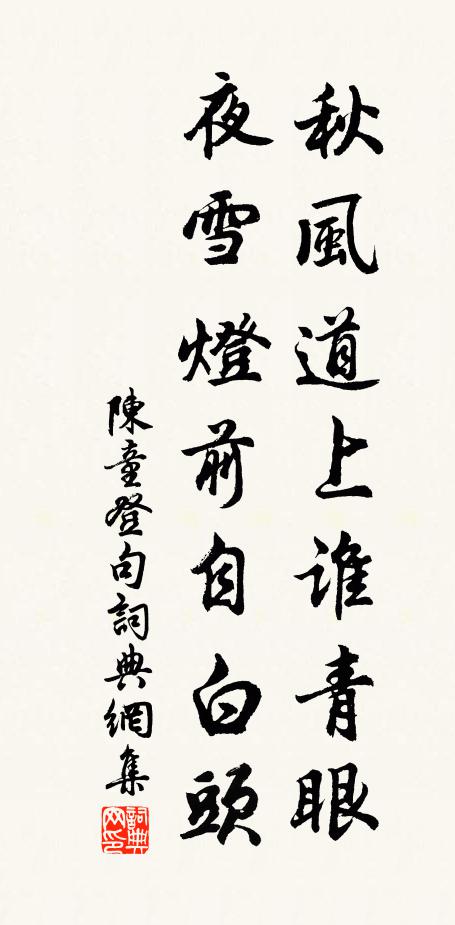 秋風道上誰青眼
夜雪燈前自白頭
陳童登句詞典網集
詞典网印